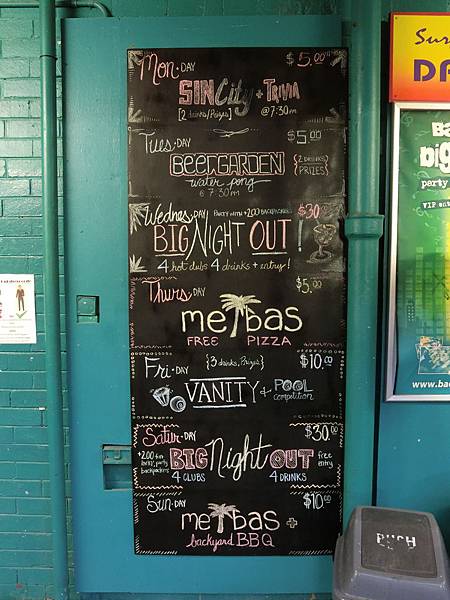 Mon·DAY $5.00
SINCity + TRIVIA
[2 drinks/Prizes] @7:30m
TUES·DAY $5.00
BEERGARDEN {2 DRINKS PRIZES}
water pong
@ 7:30m
Wednes·DAY PARTY WITH +200 BACKPACKERS $30.00
BIG NIGHT OUT!
4 hot clubs 4 drinks + entry!
Thurs·DAY $5.00
melbas
FREE PIZZA
Fri·DAY {3 drinks, Prizes} $10.00
VANITY + POOL
competition
Satur·DAY $30.00
+200 fun lovin', party backpackers BIG Night OUT free entry
4 CLUBS 4 DRINKS
Sun·DAY $10.00
melbas +
backyard BBQ
Sur
DA
Ba
big
party
VIP ent
www.bac
PUSH